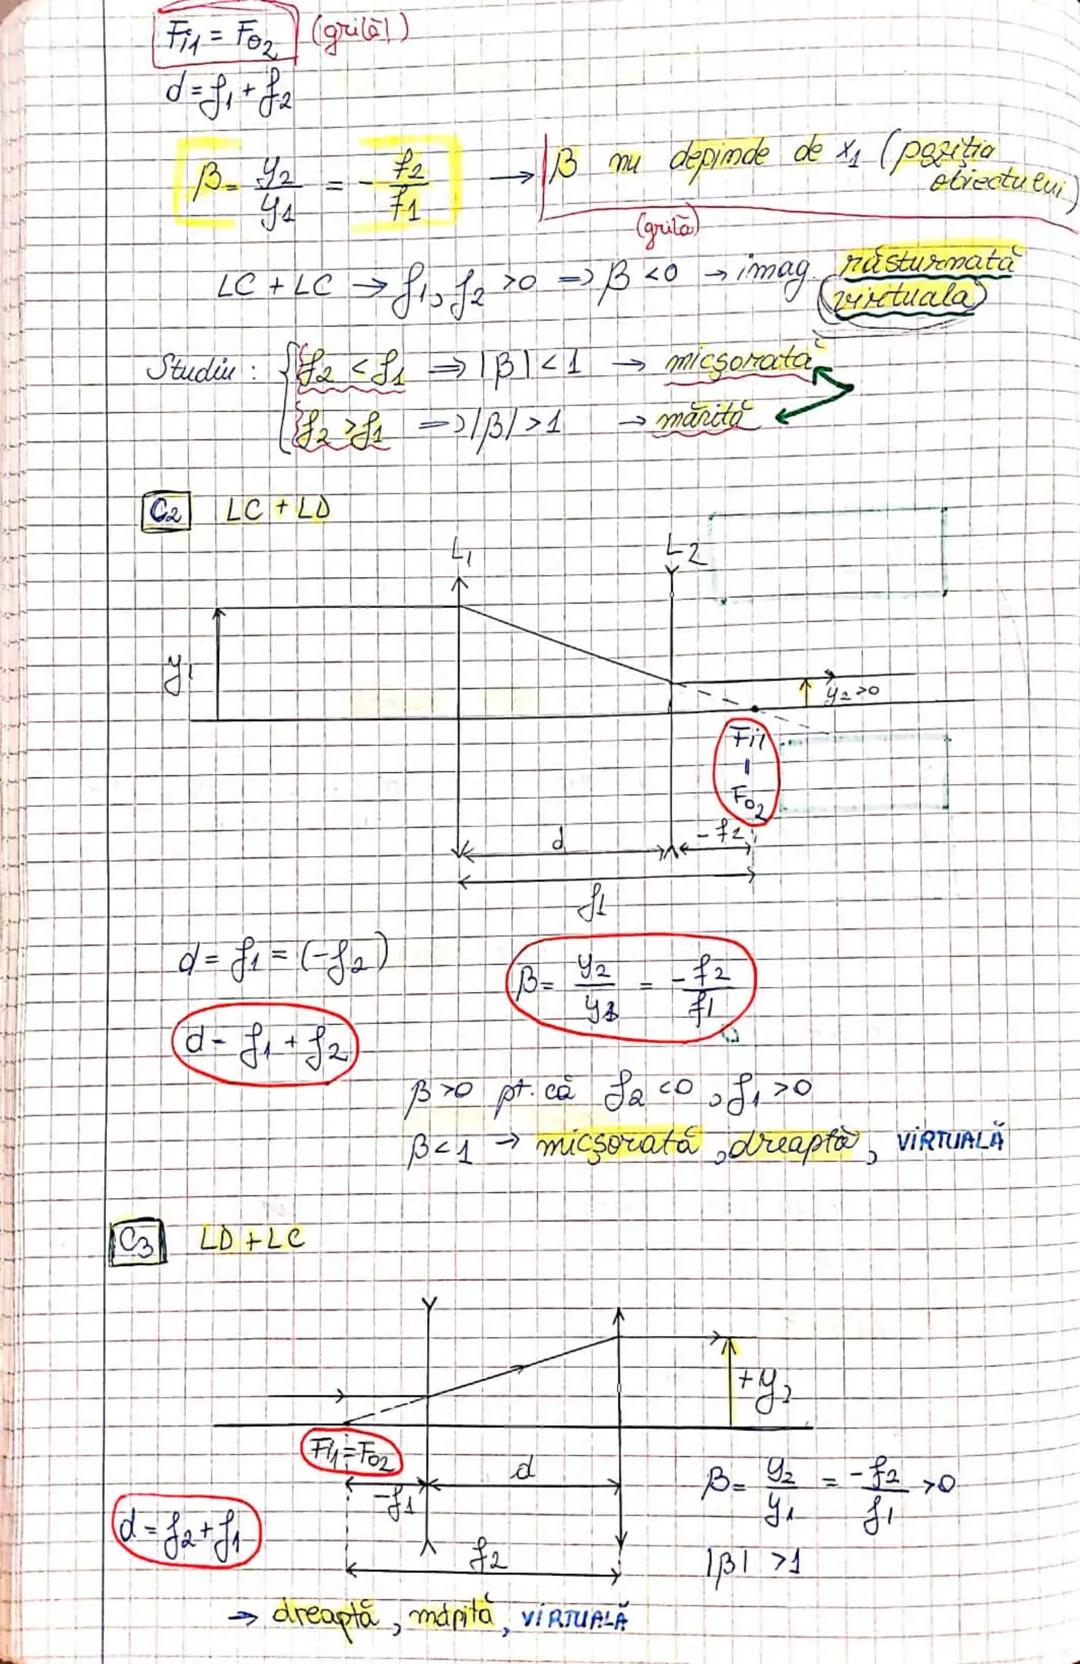 Fi1 = Fo2 (grilă!)
d = f1 + f2
β = y2/y1 = - f2/f1 → β nu depinde de x1 (poziția obiectului)
(grilă)
LC + LC → f1, f2 > 0 => β < 0 → imag. răsturnată
(virtuala)
Studiu : { f2 < f1 => |β| < 1 → micșorată
f2 > f1 => |β| > 1 → mărită
C2 LC + LD
L1 L2
y1
y2>0
Fi1
=
Fo2
d -f2
f1
d = f1 = (-f2)
β = y2/y1 = -f2/f1
d = f1 + f2
β > 0 pt. că f2 < 0, f1 > 0
β < 1 → micșorată, dreaptă, VIRTUALĂ
C3 LD + LC
+y2
Fi1 = Fo2
-f1 d
β = y2/y1 = -f2/f1 > 0
d = f2 + f1
f2
|β| > 1
→ dreaptă, mărită, VIRTUALĂ